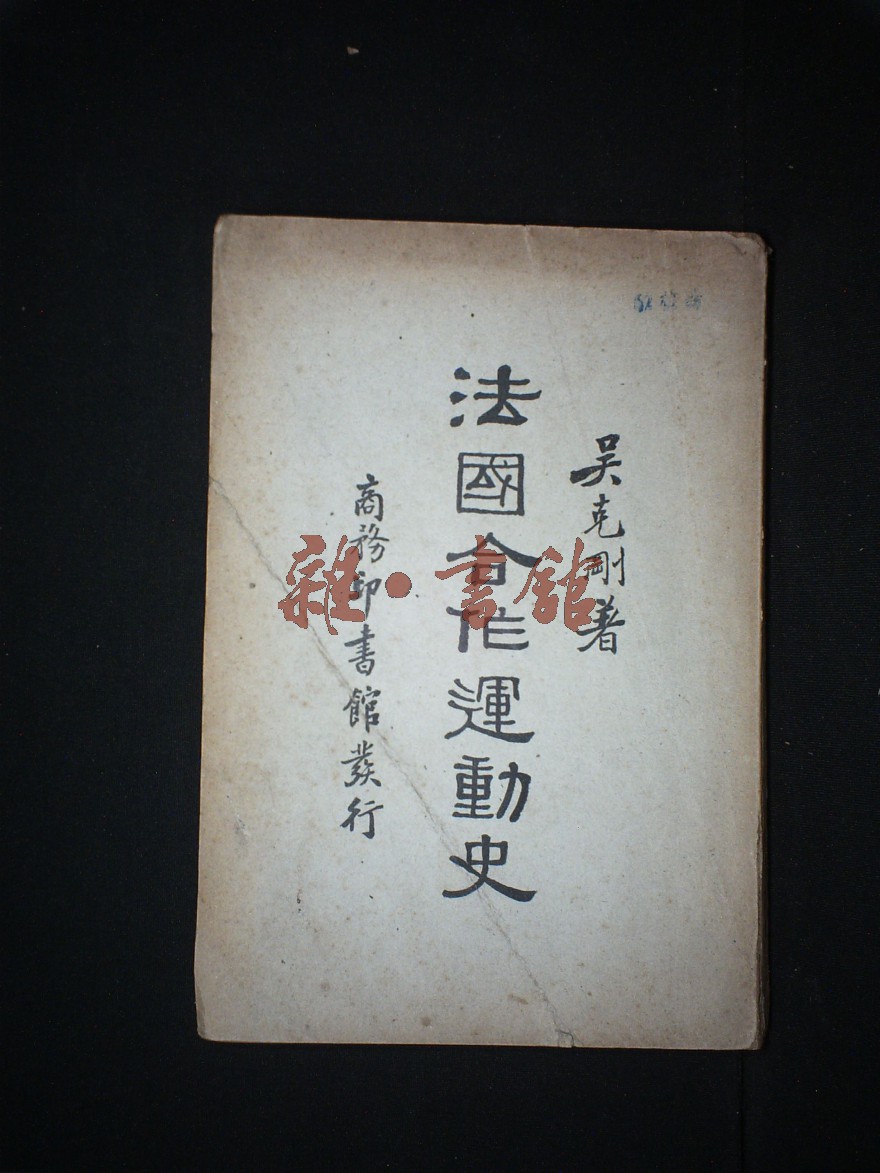 吴克剛著
法國合作運動史
商務印書館發行
雜·書館